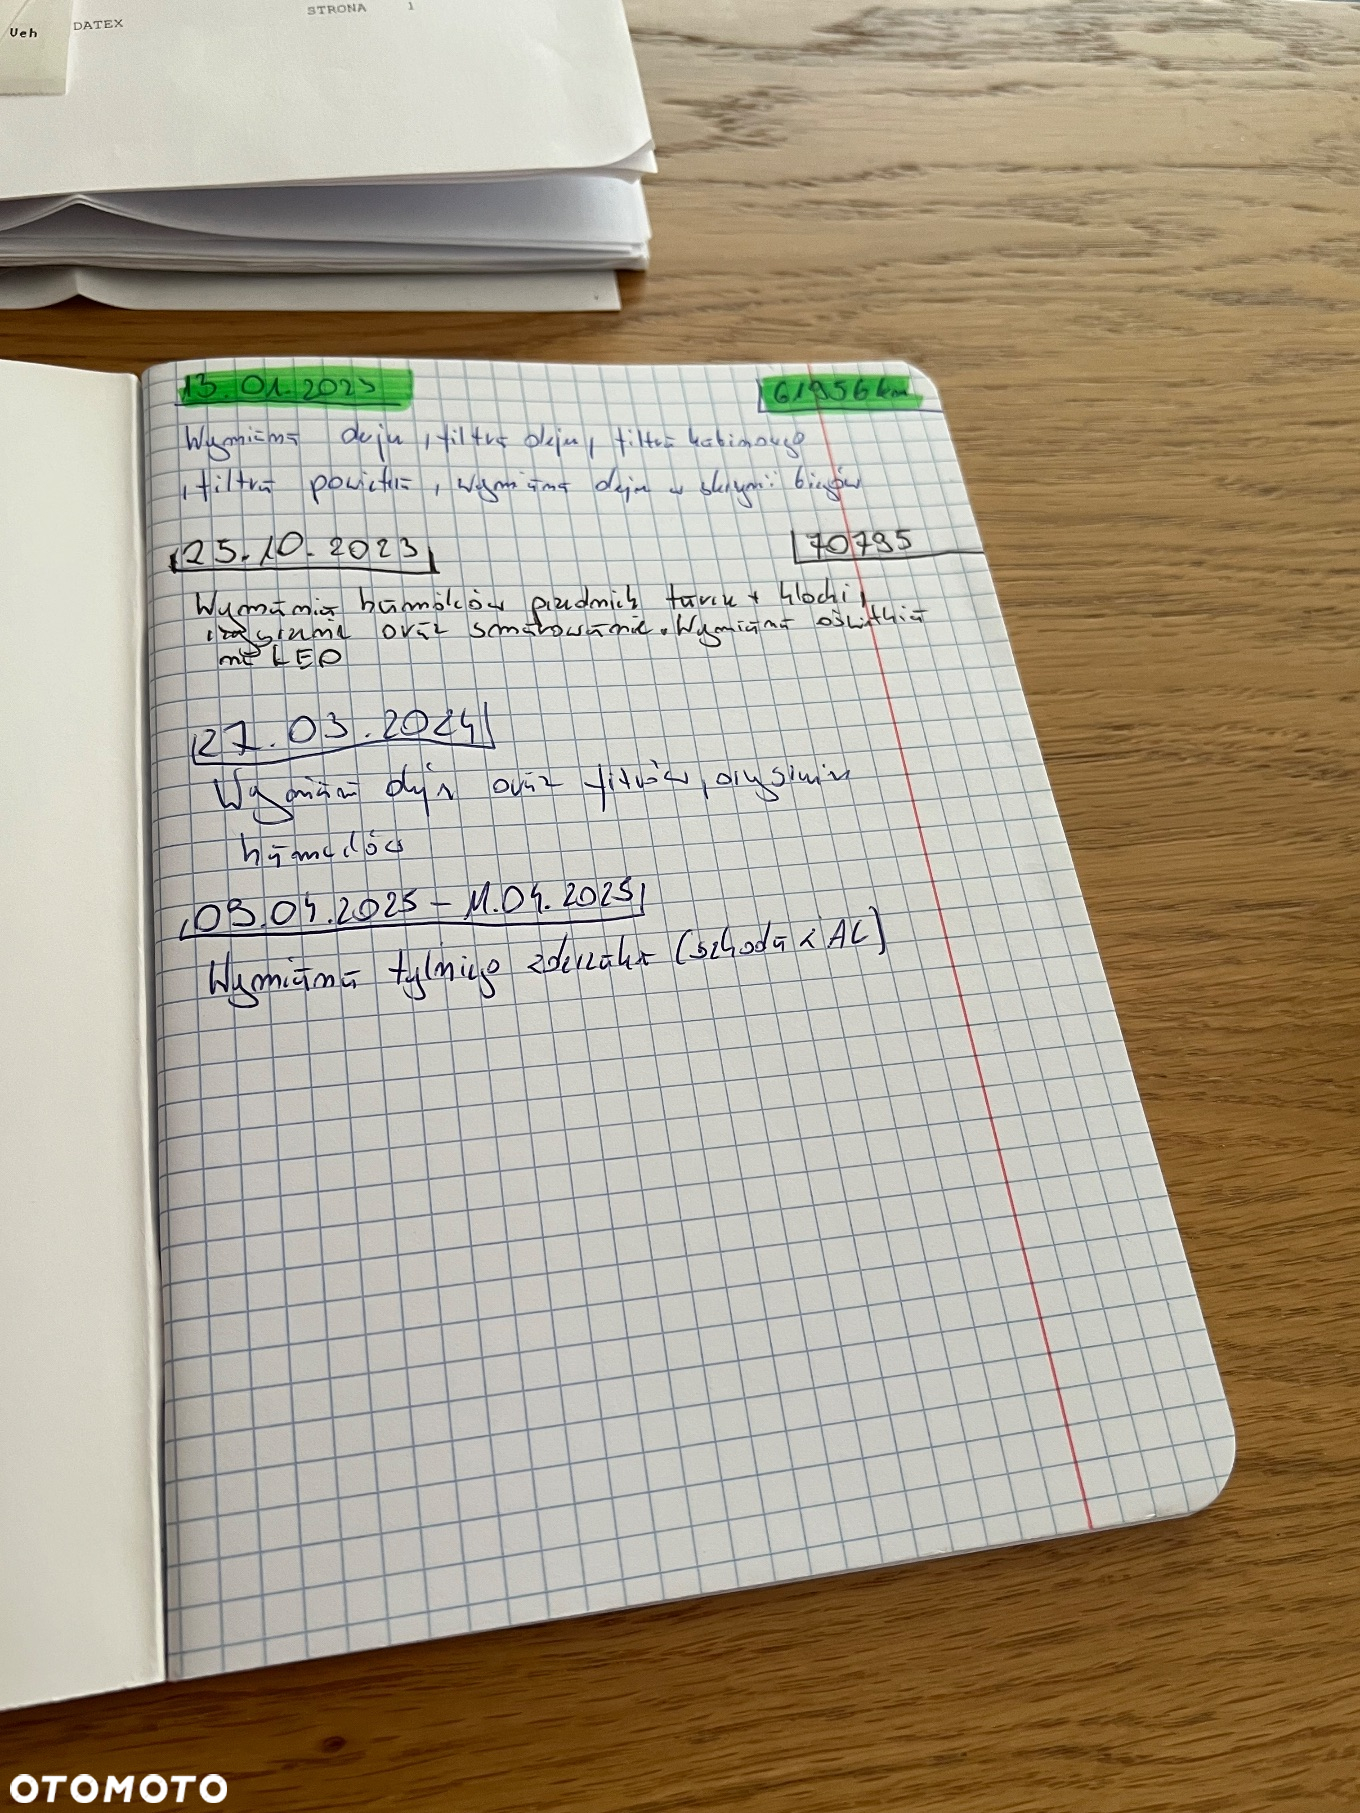 STRONA 1
Veh
DATEX
13.01.2023
61956 km
Wymiana oleju, filtra oleju, filtra kabinowego
, filtra powietrza, wymiana oleju w skrzyni biegów
25.10.2023
70795
Wymiana hamulców przednich tarcze + klocki,
czyszczenie oraz smarowanie. Wymiana oświetlenia
na LED
27.03.2024
Wymiana oleju oraz filtrów, czyszczenie
hamulców
09.04.2025 - 11.04.2025
Wymiana tylniego zderzaka (szkoda z AC)
OTOMOTO